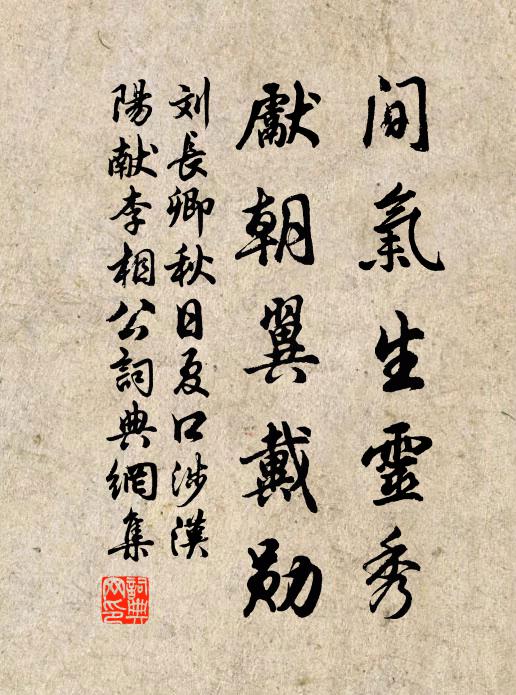 間氣生靈秀
獻朝翼戴勛
刘長卿秋日夏口涉漢
陽献李相公詞典網集
詞典网印